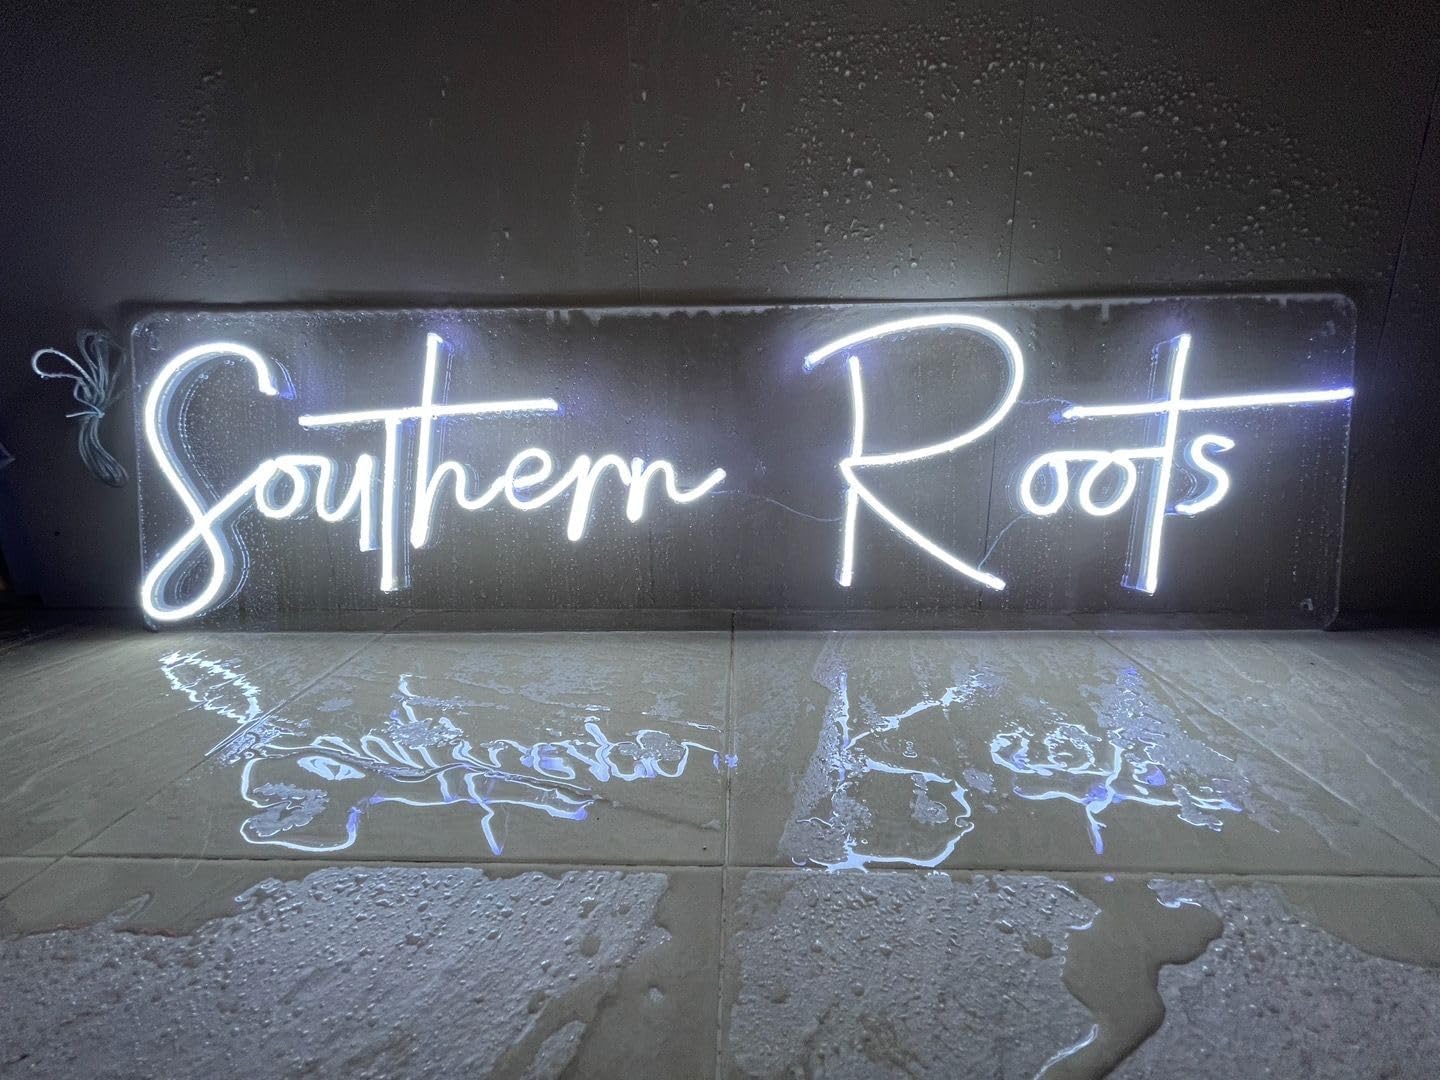 Southern Roots